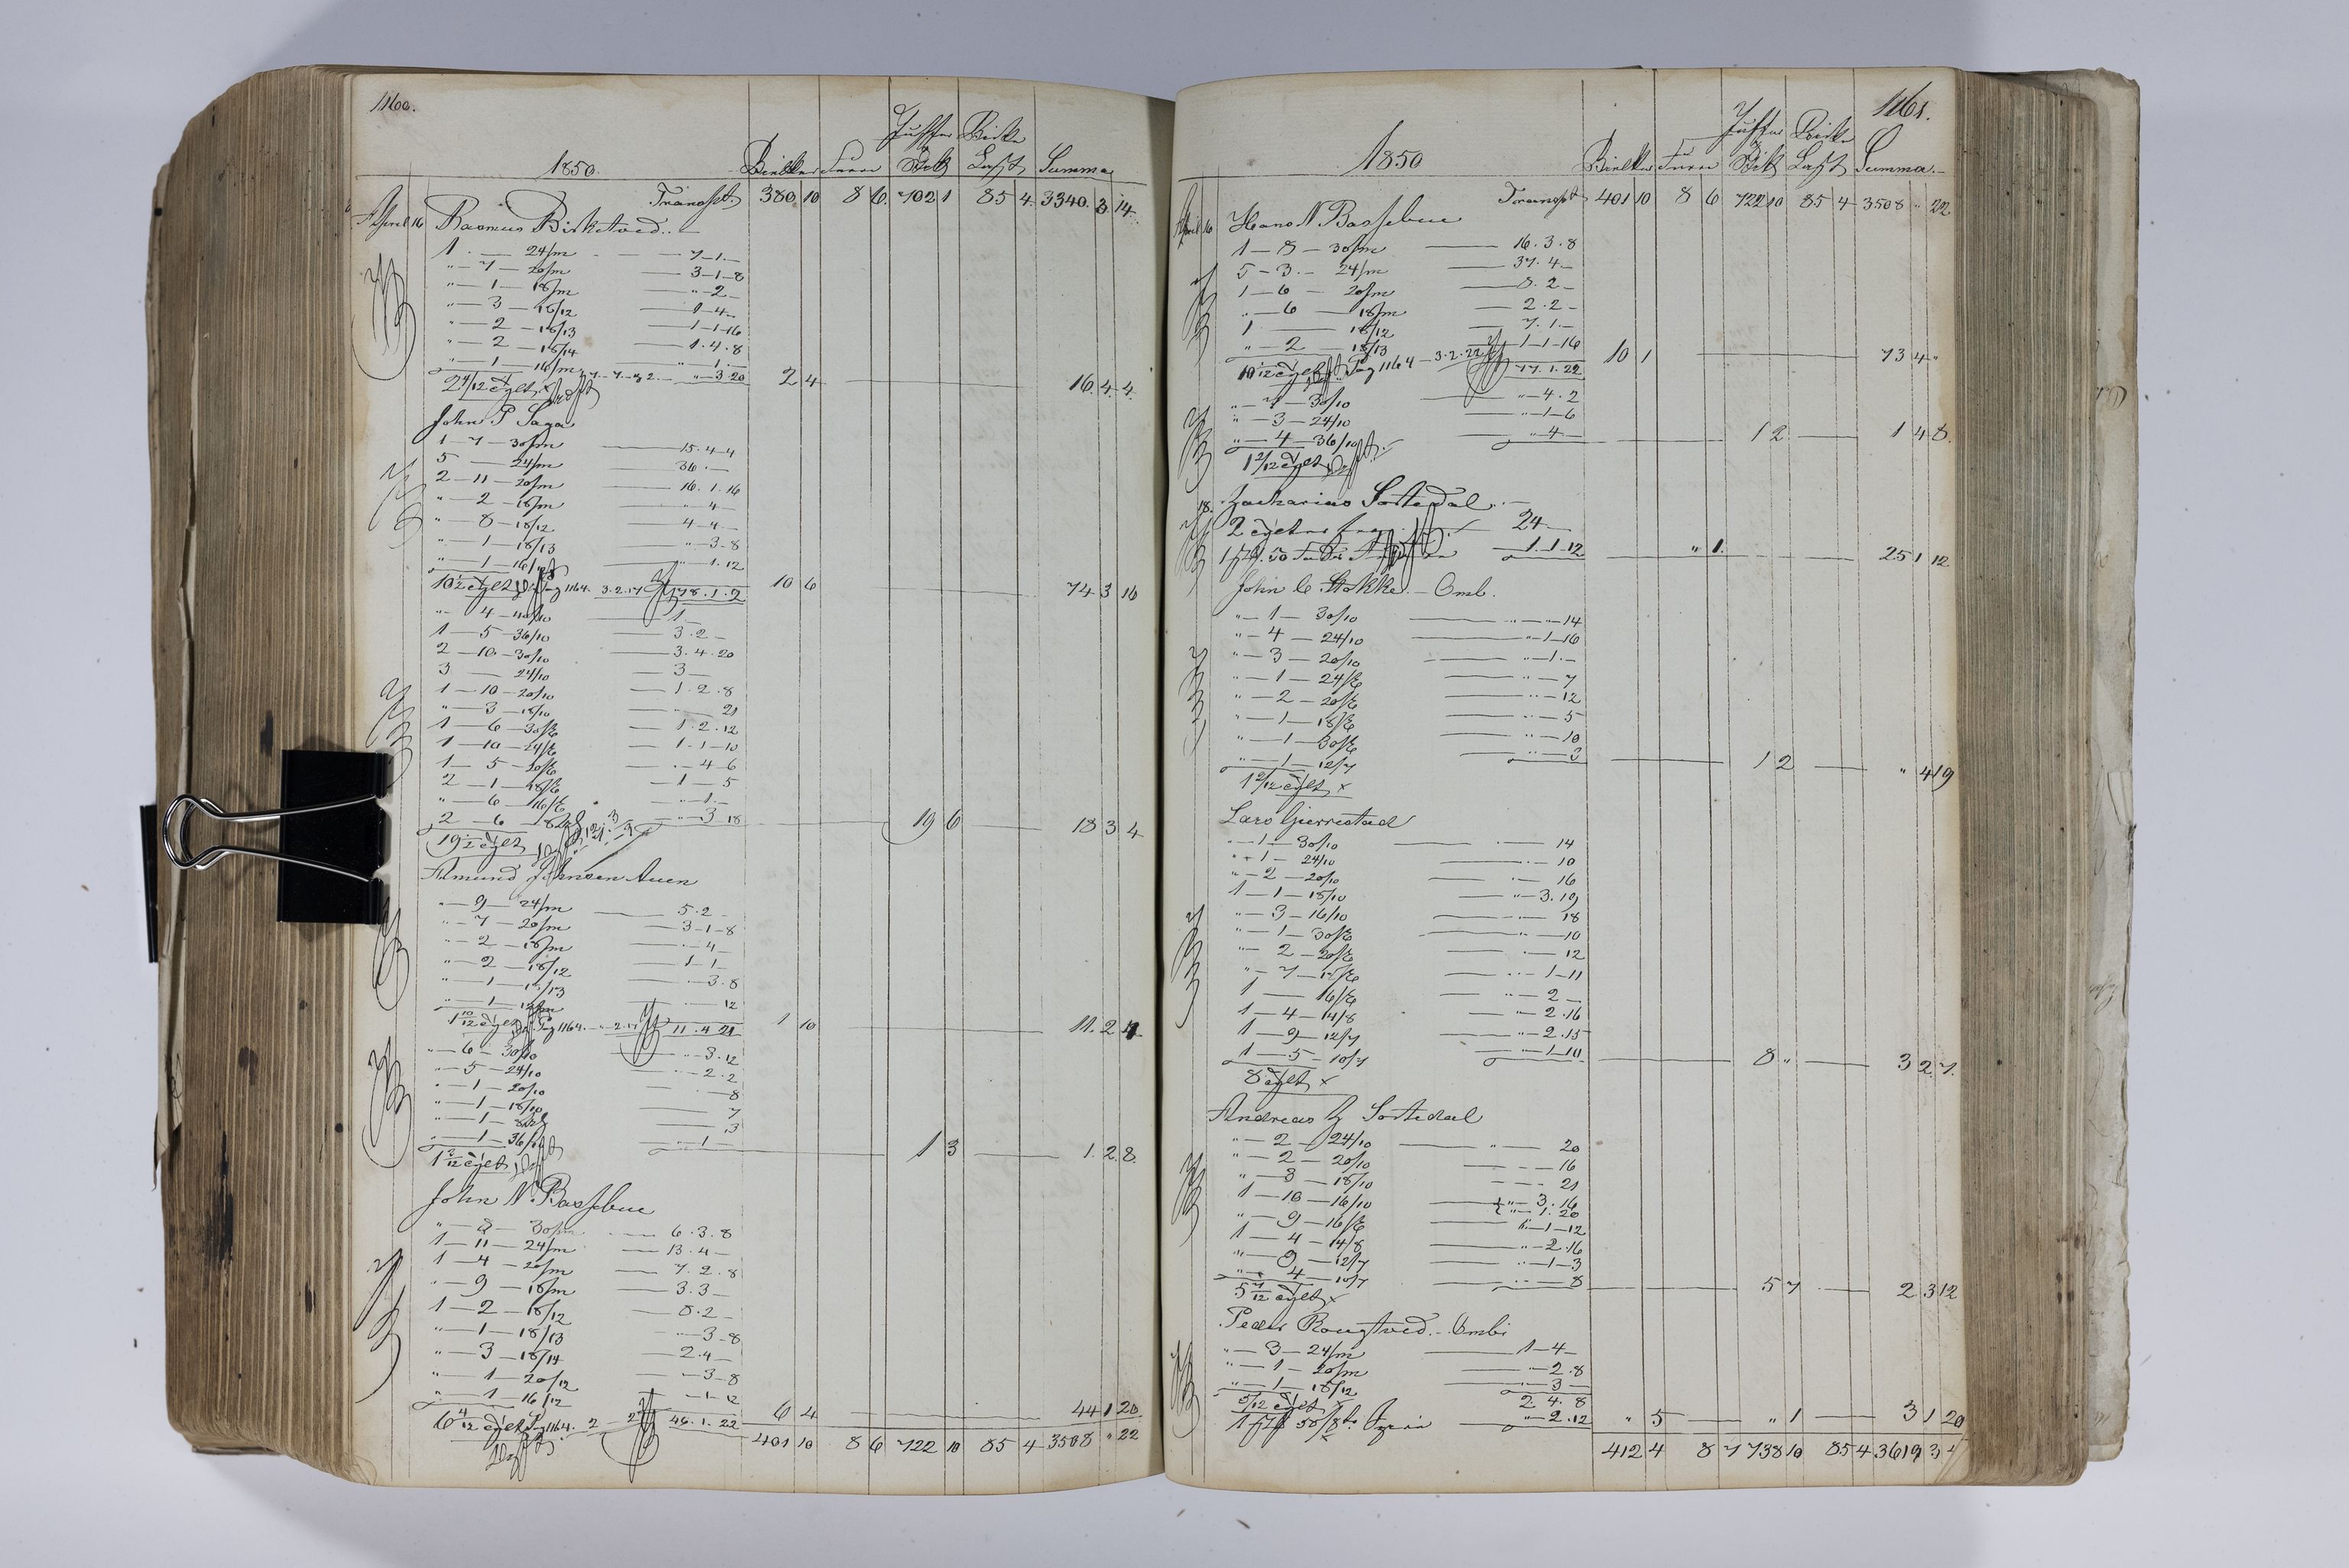 1160.
1850. Bielker Furu Juffer Tylt Birke Last Summa
Transpt. 380 10 8 6. 702 1 85 4. 3340. 3. 14.
April 16 Rasmus Birketved.
1 — 24/m — 7-1.-
" 7 — 20/m — 3-1-8
" 1 — 18/m — " 2 -
" 3 — 18/12 — 1-4-
" 2 — 18/13 — 1-1-16
" 2 — 18/14 — 1.4.8
" 1 — 16/m — " 1. -
2 4/12 tylt " 3.20 2 4 16. 4. 4.
John P Saga
1 — 7 — 30/m — 15.4.4
5 — 24/m — 36. —
2 — 11 — 20/m — 16.1.16
" 2 — 18/m — " 4 —
" 8 — 18/12 — 4-4-
" 1 — 18/13 — " 3-8
" 1 — 16/12 — " 1.12
10 6/12 tylt Pag 1164. 3.2.14 78.1.2 10 6 74 3 16
" 4 — 40/10 — 1 —
1 — 5 — 36/10 — 3.2 -
2 — 10 — 30/10 — 3.4.20
3 — 24/10 — 3 —
1 — 10 — 20/10 — 1.2.8
" 3 — 18/10 — " 21
1 — 6 — 30/E — 1.2.12
1 — 10 — 24/E — 1-1-10
1 — 5 — 20/E — " 4-6
2 — 1 — 18/E — 1 — 5
" 6 — 16/E — " 1. -
2 — 6 — " 3 18 19 6 18 3 4
19 6/12 tylt
Amund Johnsen Auen
" 9 — 24/m — 5.2 -
" 7 — 20/m — 3-1-8
" 2 — 18/m — " 4 -
" 2 — 18/12 — 1-1-
" 1 — 18/13 — " 3.8
" 1 — — " 12
1 10/12 tylt Pag 1164. " 2.17 11.4.21 1 10 11. 2 4
" 6 — 30/10 — " 3.12
" 5 — 24/10 — " 2.2
" 1 — 20/10 — " 8
" 1 — 18/10 — 7
" 1 — — 3
" 1 — 36/10 — " 1 — 1 3 1. 2. 8.
1 3/12 tylt
John N. Bassebue
" 8 — 30/m — 6.3.8
1 — 11 — 24/m — 13.4-
1 — 4 — 20/m — 7.2.8
" 9 — 18/m — 3.3-
1 — 2 — 18/12 — 8.2-
" 1 — 18/13 — " 3-8
" 3 — 18/14 — 2.4-
" 1 — 20/12 — " 3-8
" 1 — 16/12 — " 1-12
6 4/12 tylt Pag 1164. 46.1.22 6 4 44 1 20.
401 10 8 6 722 10 85 4 3508 " 22
1161.
1850 Bielker Furu Juffer Tylt Birke Last Summa.
Transpt 401 10 8 6 722 10 85 4 3508 " 22
April 16 Hans N Bassebue
1 — 8 — 30/m — 16.3.8
5 — 3. — 24/m — 37.4-
1 — 6 — 20/m — 8.2-
" 6 — 18/m — 2.2-
1 — 18/12 — 7.1.-
" 2 — 18/13 — 1-1-16
10 1/12 tylt Pag 1164 — 3.2.22 77.1.22 10 1 73 4 "
" 7 — 30/10 — " 4.2
" 3 — 24/10 — " 1-6
" 4 — 36/10 — " 4 — 1 2 1 4 8.
1 2/12 tylt
18. Zacharias Sortedal.
2 24 —
1 1.1.12 " 1. 25 1 12
John C Stokke. — Omb.
" 1 — 30/10 — " 14
" 4 — 24/10 — " 1-16
" 3 — 20/10 — " 1.-
" 1 — 24/E — " 7
" 2 — 20/E — " 12
" 1 — 18/E — " 5
" 1 — 30/E — " 10
" 1 — 12/7 — " 3 1 2 " 4 19
1 2/12 tylt x
Lars Gierrestad
" 1 — 30/10 — 14
" 1 — 24/10 — 10
" 2 — 20/10 — 16
1 — 1 — 18/10 — " 3.19
" 3 — 16/10 — 18
" 1 — 30/E — " 10
" 2 — 20/E — 12
" 7 — 18/E — " 1-11
1 — 16/E — " 2 —
1 — 4 — 14/8 — " 2.16
1 — 9 — 12/7 — " 2.15
1 — 5 — 10/7 — " 1.10. 8 " 3 2. 7.
8 tylt x
Andreas Z Sortedal
" 2 — 24/10 — " 20
" 2 — 20/10 — 16
" 3 — 18/10 — 21
1 — 10 — 16/10 — " 3.16
" 1.20
" 9 — 16/E — " 1-12
1 — 4 — 14/8 — " 2.16
" 9 — 12/7 — " 1-3
" 4 — 10/7 — " 8 5 7 2 3 12
5 7/12 tylt x
Peder Rougtved. — Ombi
" 3 — 24/m — 1-4-
" 1 — 20/m — " 2.8
" 1 — 18/12 — " 3 —
5/12 tylt x 2.4.8
1 " 2.12 " 5 " 1 3 1 20
412 4 8 7 738 10 85 4 3619 3